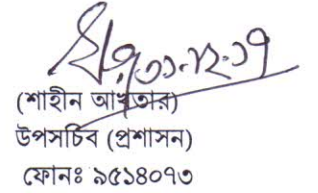 ৩১.১২.১৭
(শাহীন আখতার)
উপসচিব (প্রশাসন)
ফোনঃ ৯৫১৪০৭৩